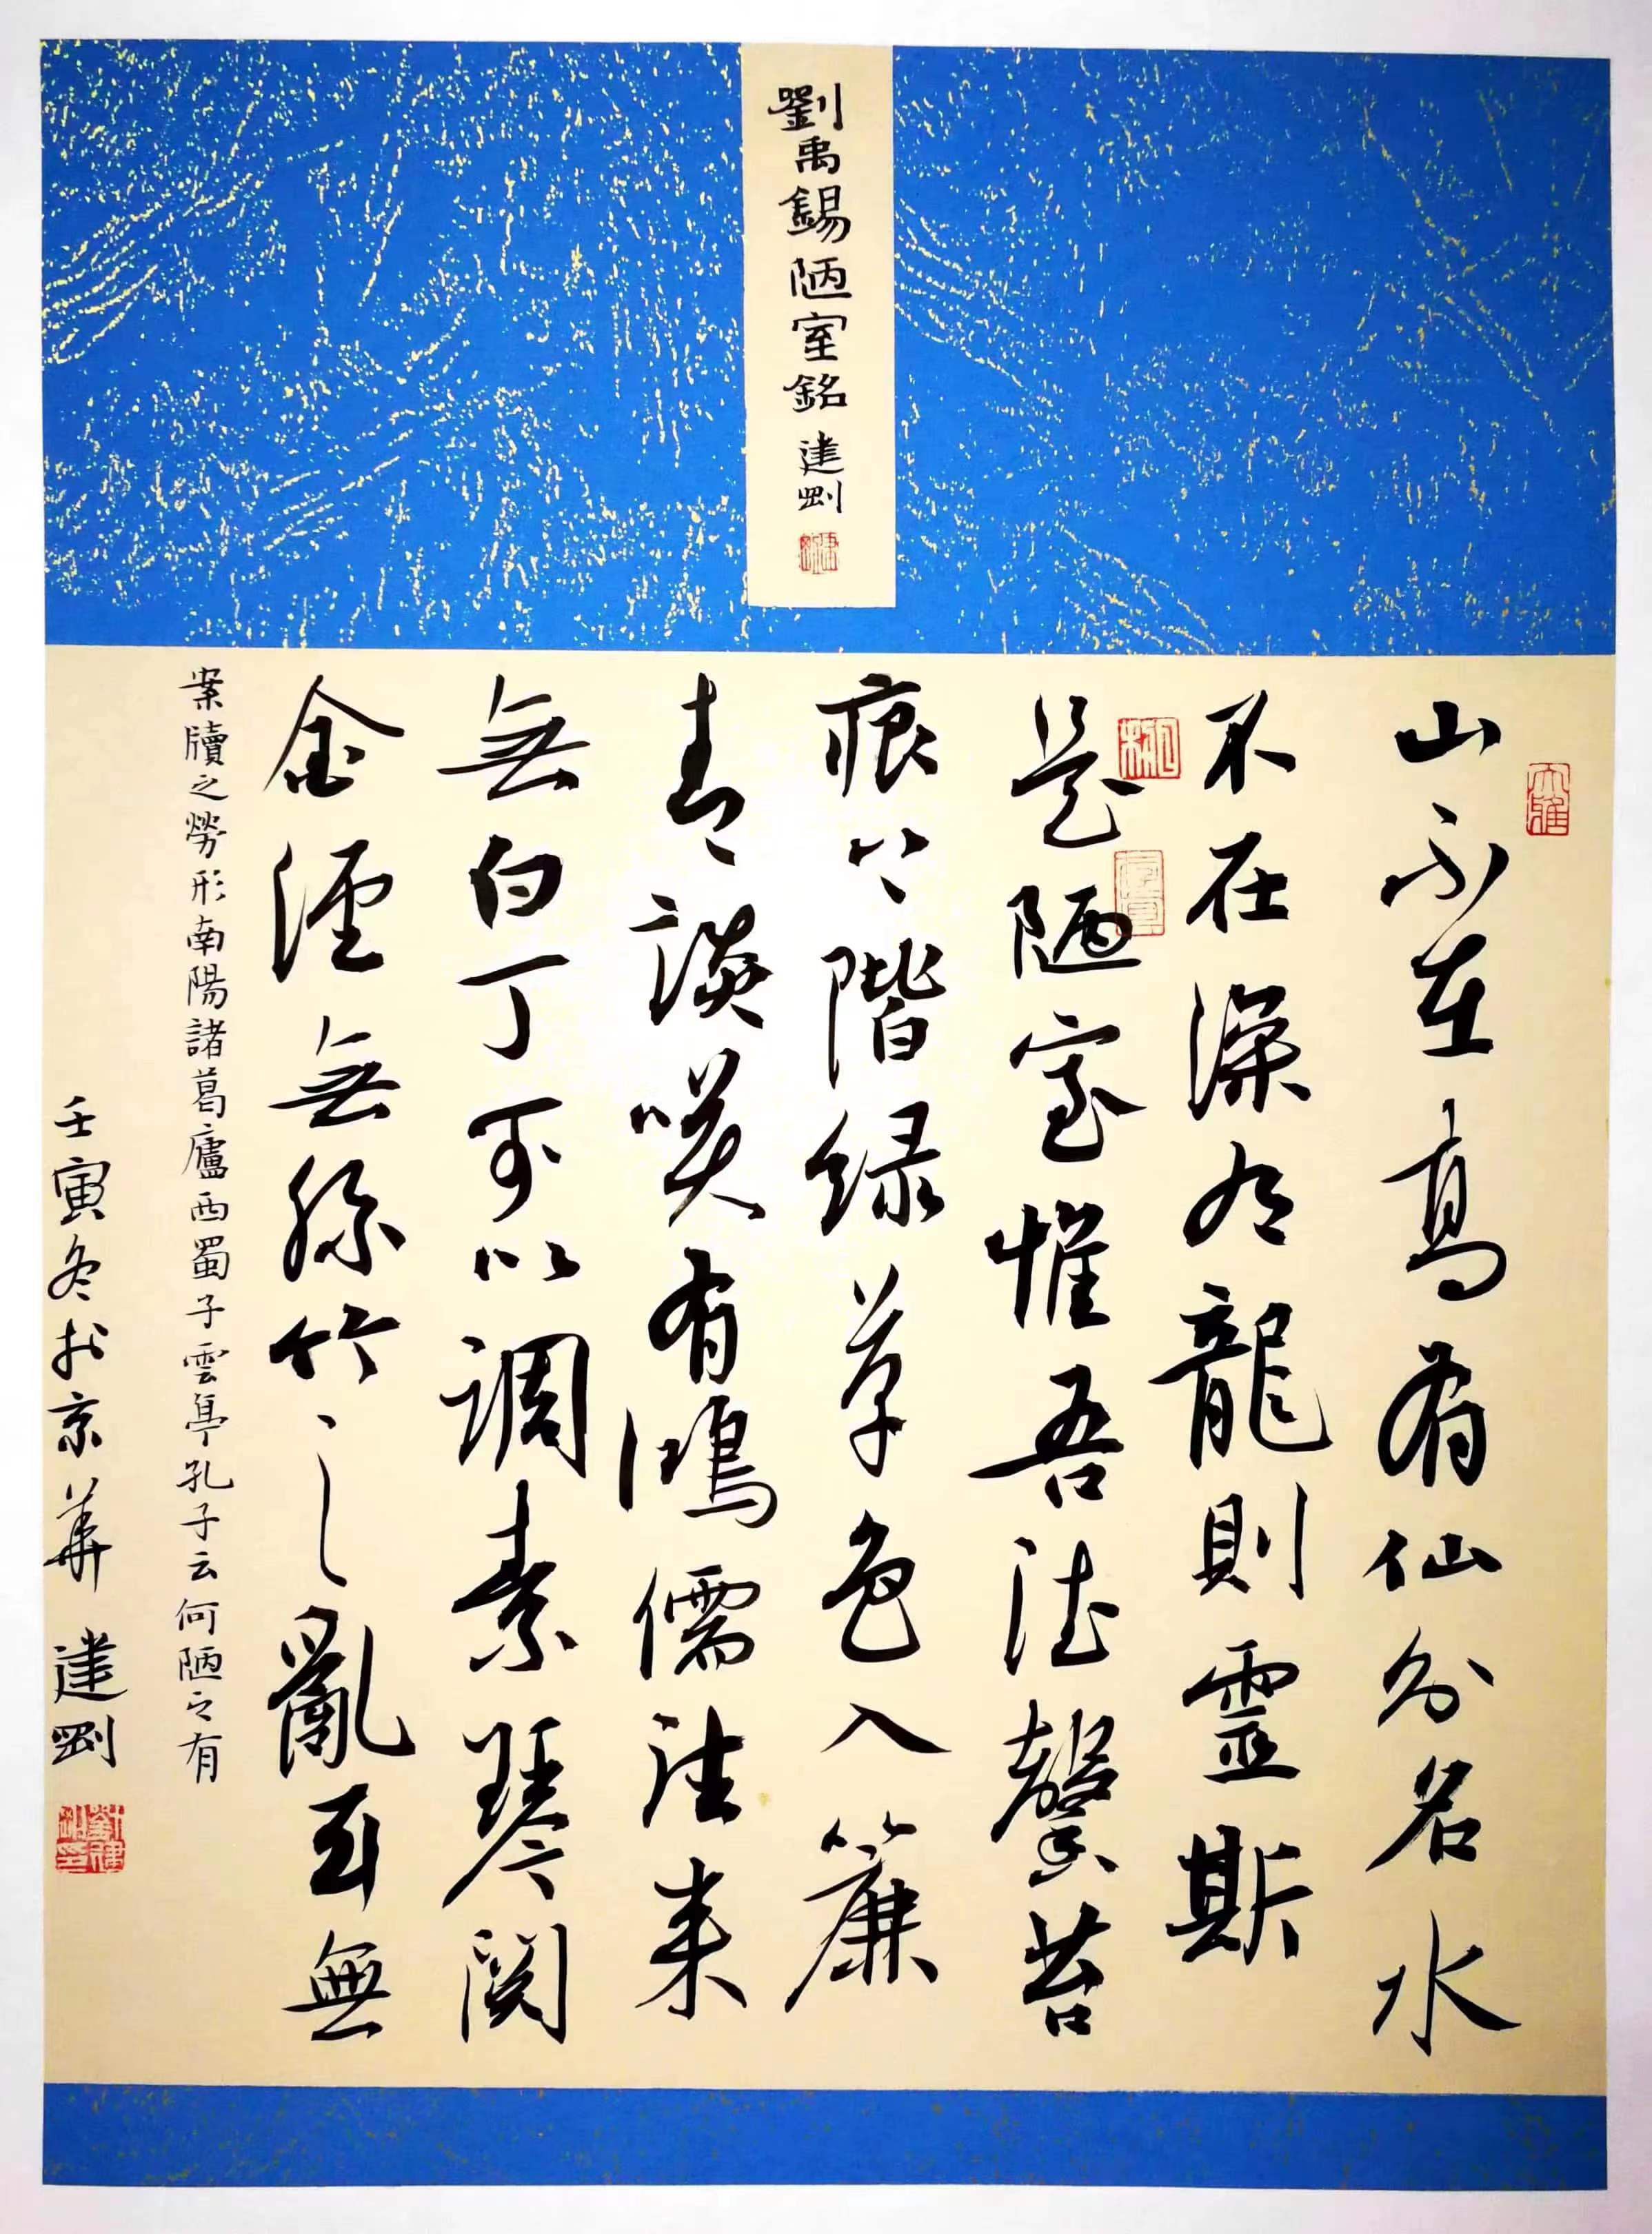 劉禹錫陋室銘 建剛
山不在高有仙則名水
不在深有龍則靈斯
是陋室惟吾德馨苔
痕上階緑草色入簾
青談笑有鴻儒往来
無白丁可以調素琴閱
金經無絲竹之亂耳無
案牘之勞形南陽諸葛廬西蜀子雲亭孔子云何陋之有
壬寅冬於京華 建剛